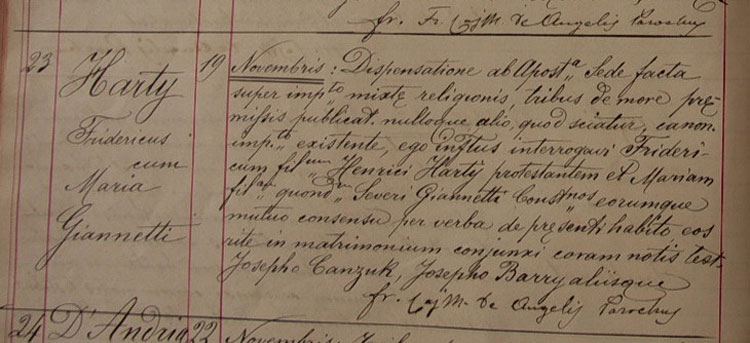 fr. Fr. Caj M. de Angelis Parochus
23 Harty 19 Novembris: Dispensatione ab Apost.a Sede facta
super imp.to mixtę religionis, tribus de more prę-
Fridericus missis publicat. nulloque alio, quod sciatur, canon.
cum imp.to existente, ego inftus interrogavi Frideri-
Maria cum filium Henrici Harty protestantem et Mariam
filam quondm Severi Giannetti Constnos eorumque
Giannetti mutuo consensu per verba de pręsenti habito eos
rite in matrimonium conjunxi coram notis test.
Josepho Canzuk, Josepho Barry aliisque
fr. Caj M. de Angelis Parochus
24 D'Andria 22 Novembris: